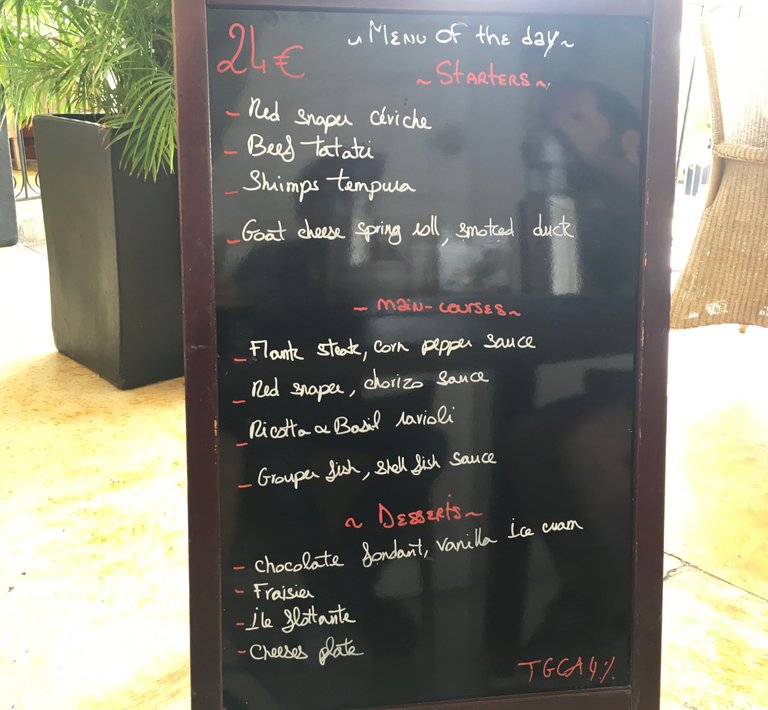 24€
~ Menu of the day ~
~ Starters ~
- Red snaper céviche
- Beef tataki
- Shrimps tempura
- Goat cheese spring roll, smoked duck
- main-courses ~
- Flank steak, corn pepper sauce
- Red snaper, chorizo sauce
- Ricotta & Basil ravioli
- Grouper fish, shell fish sauce
~ Desserts ~
- chocolate fondant, vanilla Ice cream
- Fraisier
- Ile flottante
- Cheeses plate
TGCA 4%